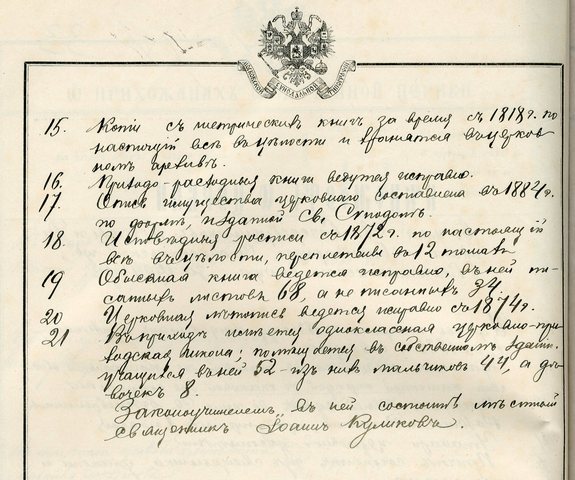 15. Копіи съ метрическихъ книгъ за время съ 1818 г. по
настоящій всѣ въ цѣлости и хранятся въ церков
номъ архивѣ.
16. Приходо-расходныя книги ведутся исправно.
17. Опись имущества церковнаго составлена въ 1884 г.
по формѣ, изданной Св. Сѵнодомъ.
18. Исповѣдныя росписи съ 1872 г. по настоящій
всѣ въ цѣлости, переплетены въ 12 томахъ
19 Обыскная книга ведется исправно, въ ней пи-
санныхъ листовъ 68, а не писанныхъ 34.
20 Церковная лѣтопись ведется исправно съ 1874 г.
21 Въ приходѣ имѣется одноклассная церковно-при-
ходская школа; помѣщается въ собственномъ зданіи.
учащихся въ ней 52 - изъ нихъ мальчиковъ 44, а дѣ
вочекъ 8.
Законоучителемъ въ ней состоитъ мѣстный
священникъ Іоаннъ Куликовъ.